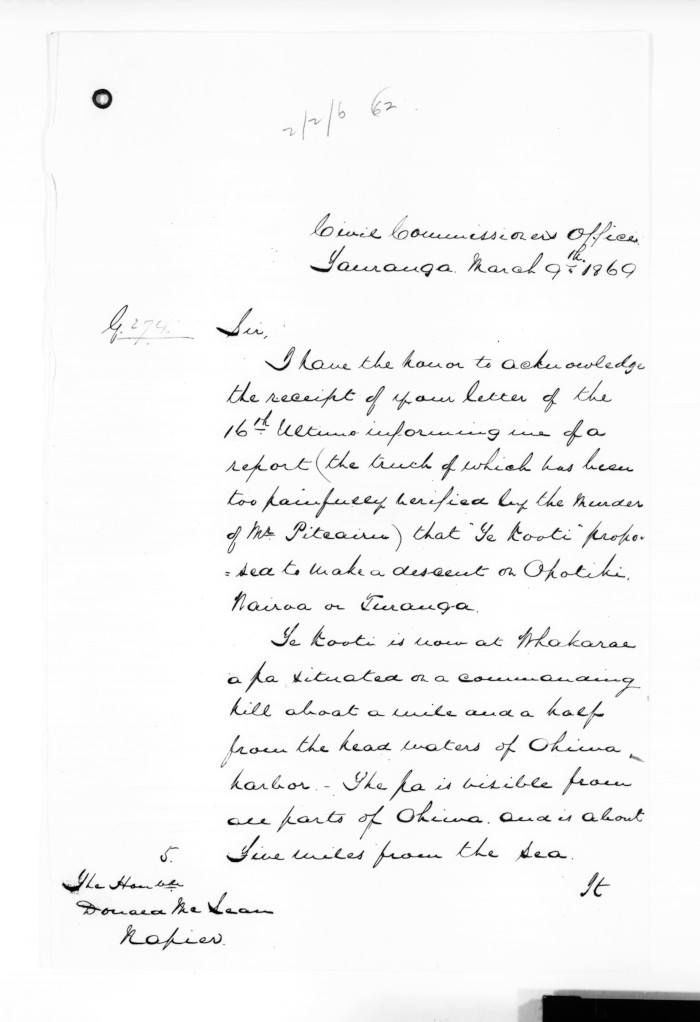 2/2/6 62
Civil Commissioners Office
Tauranga. March 9th 1869
G. 274.
Sir,
I have the honor to acknowledge
the receipt of your letter of the
16th Ultimo informing me of a
report (the truth of which has been
too painfully verified by the Murder
of Mr Pitcairn) that "Te Kooti" propo-
=sed to make a descent on Opotiki,
Wairoa or Turanga.
Te Kooti is now at Whakarae
a pa situated on a commanding
hill about a mile and a half
from the head waters of Ohiwa
harbor. - The pa is visible from
all parts of Ohiwa. and is about
five miles from the sea.
It
5.
The Honble
Donald McLean
Napier.